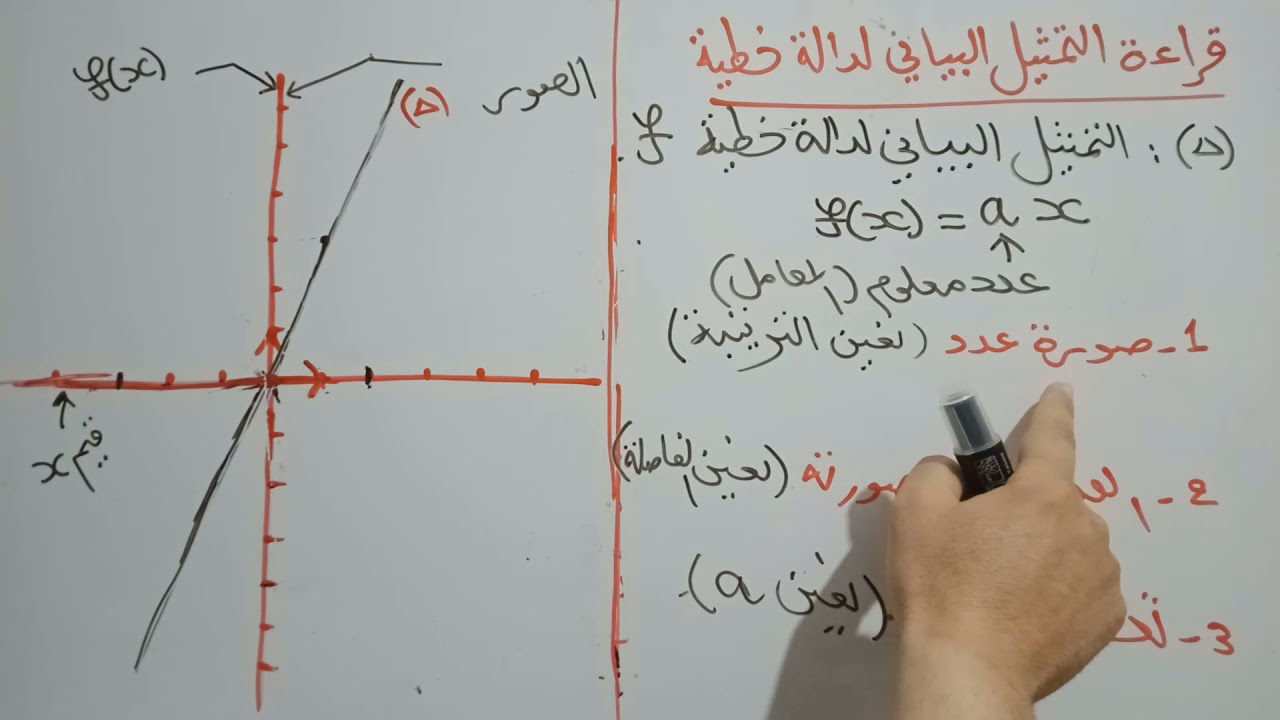 قراءة التمثيل البياني لدالة خطية
(Δ) : التمثيل البياني لدالة خطية f.
f(x) = a x
عدد معلوم (المعامل)
1- صورة عدد (تعين الترتيبة)
2- صورته (تعين الفاصلة)
3- (تعين a).
f(x)
الصور
(Δ)
قيم x